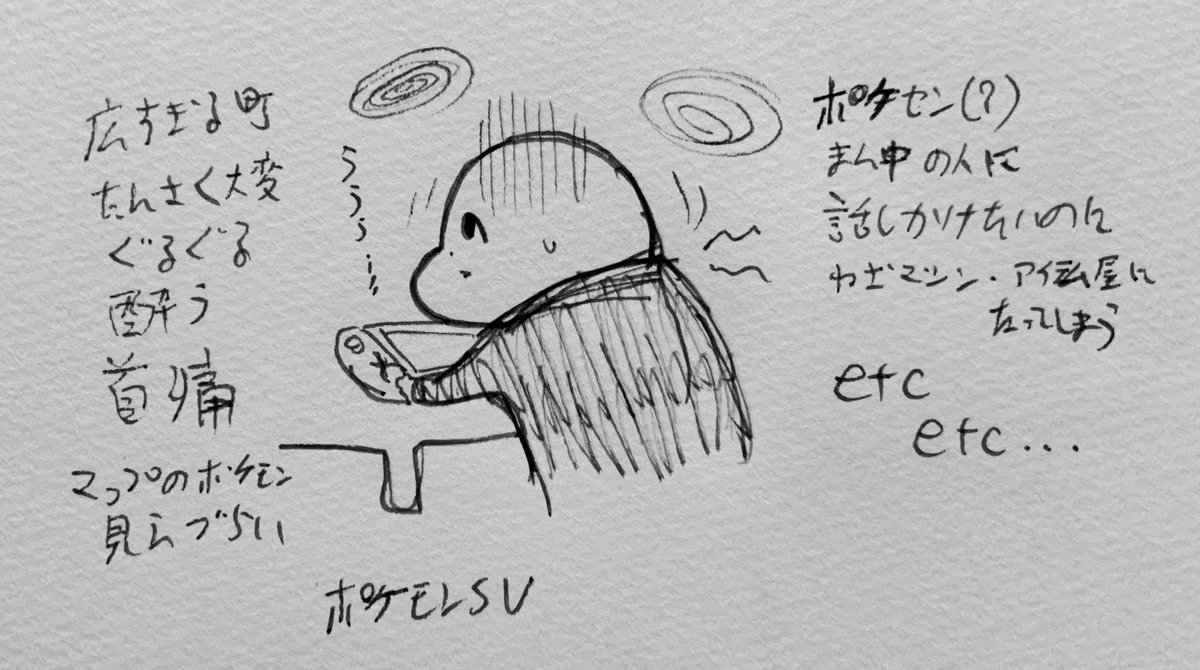 広すぎる町
たんさく大変
ぐるぐる
酔う
首痛
マップのポケモン
見えづらい
ううぅ…
ポケセン(?)
まん中の人に
話しかけたいのに
わざマシン・アイテム屋に
なってしまう
etc
etc...
ポケモンSV